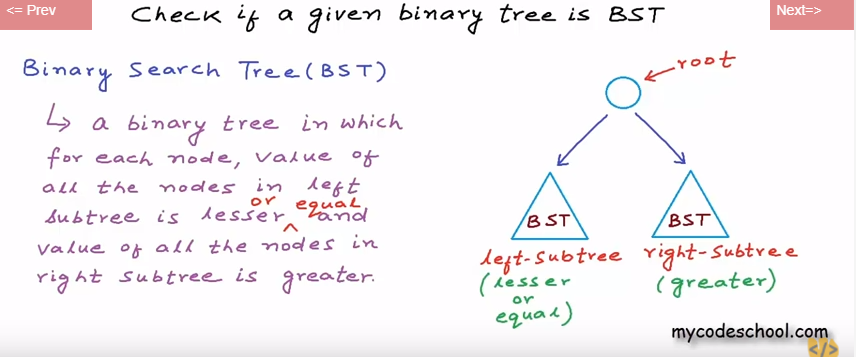 <= Prev
Check if a given binary tree is BST
Next=>
Binary Search Tree (BST)
↳ a binary tree in which
for each node, value of
all the nodes in left
subtree is lesser or equal and
value of all the nodes in
right subtree is greater.
root
BST
BST
left-subtree
(lesser
or
equal)
right-subtree
(greater)
mycodeschool.com
</>